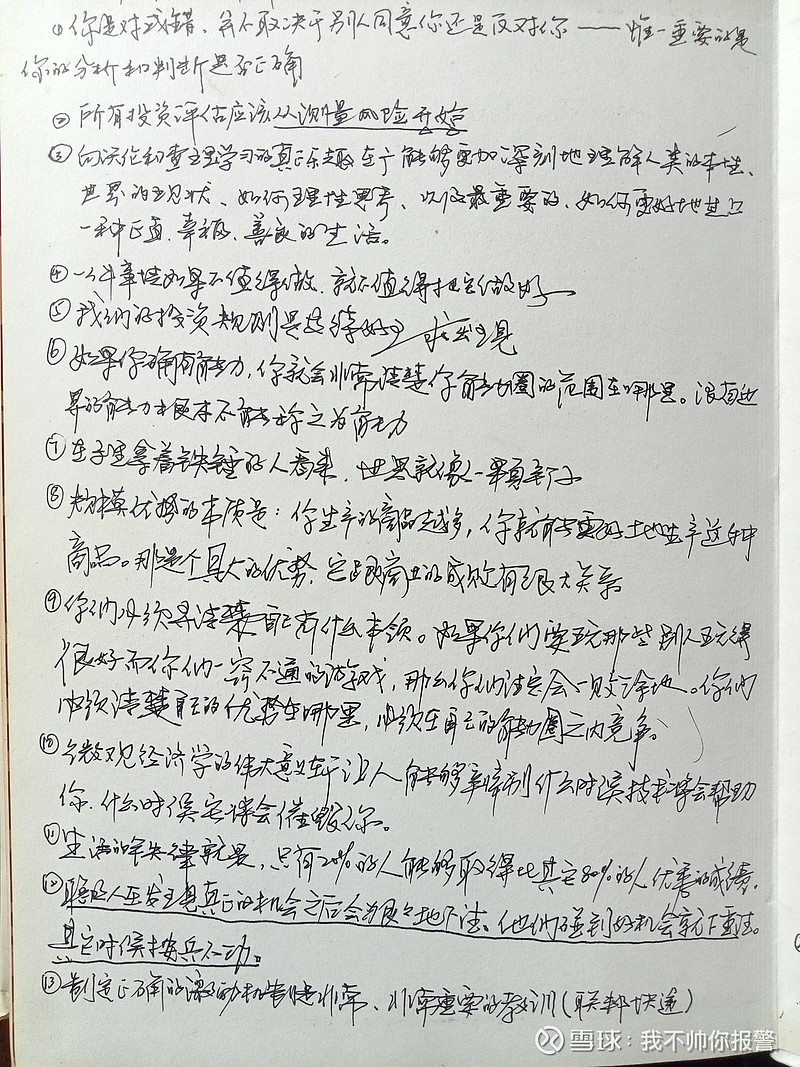 ① 你是对或错，并不取决于别人同意你还是反对你——惟一重要的是
你的分析和判断是否正确
② 所有投资评估应该从测量风险开始
③ 向沃伦和查理学习的真正乐趣在于能够更加深刻地理解人类的本性、
世界的现状、如何理性思考、以及最重要的，如何更好地过上
一种正直、幸福、善良的生活。
④ 一件事情如果不值得做，就不值得把它做好
⑤ 我们的投资规则是等待好 出现
⑥ 如果你确有能力，你就会非常清楚你能力圈的范围在哪里。没有边
界的能力根本不能称之为能力
⑦ 在手里拿着铁锤的人看来，世界就像一颗钉子
⑧ 规模优势的本质是：你生产的商品越多，你就能更好地生产这种
商品。那是个巨大的优势，它跟商业的成败有很大关系
⑨ 你们必须弄清楚自己有什么本领。如果你们要玩那些别人玩得
很好而你们一窍不通的游戏，那么你们注定会一败涂地。你们
必须清楚自己的优势在哪里，必须在自己的能力圈之内竞争。
⑩ 微观经济学的伟大意义在于让人能够辨别什么时候技术将会帮助
你，什么时候它将会摧毁你。
⑪ 生活的铁律就是，只有20%的人能够取得比其它80%的人优秀的成绩。
⑫ 聪明人在发现真正的机会之后会狠狠地下注、他们碰到好机会就下重注。
其它时候按兵不动。
⑬ 制定正确的激励机制是非常、非常重要的教训（联邦快递）
雪球：我不帅你报警